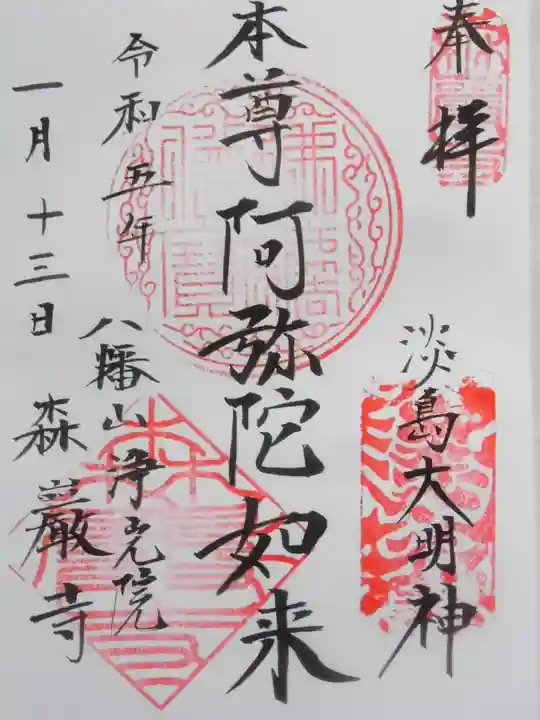 奉拝
淡島大明神
本尊阿弥陀如来
令和五年
一月十三日
八幡山浄光院
森巌寺